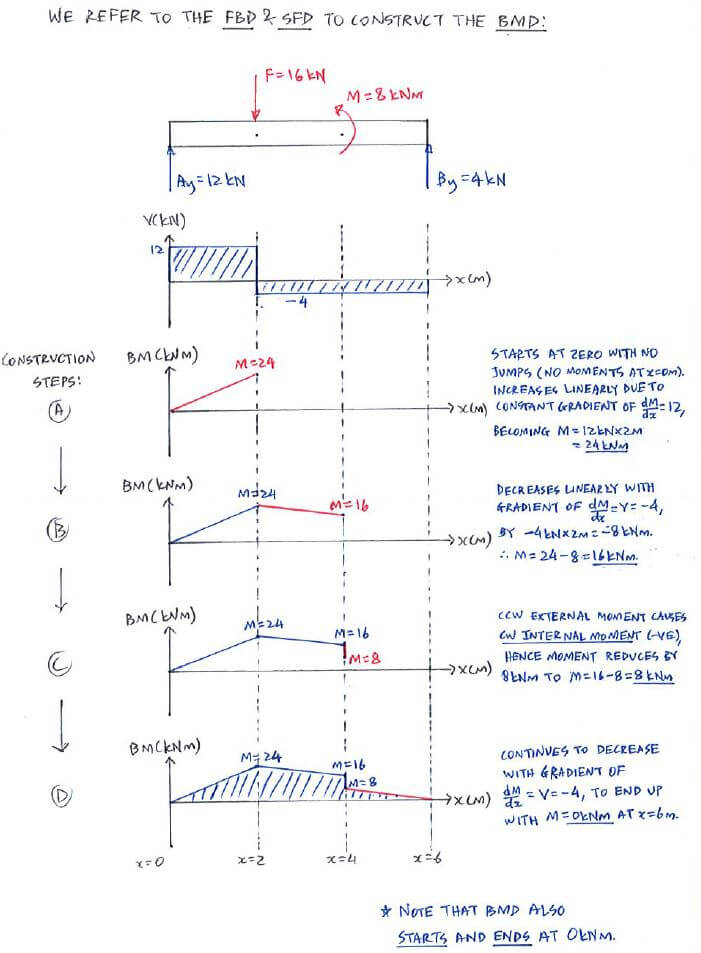 WE REFER TO THE FBD & SFD TO CONSTRUCT THE BMD:
F=16kN
M=8kNm
Ay=12kN
By=4kN
V(kN)
12
x(m)
-4
CONSTRUCTION
STEPS:
BM(kNm)
M=24
x(m)
A
STARTS AT ZERO WITH NO
JUMPS (NO MOMENTS AT x=0m).
INCREASES LINEARLY DUE TO
CONSTANT GRADIENT OF dM/dx=12,
BECOMING M=12kN×2M
=24kNm
BM(kNm)
M=24
M=16
x(m)
B
DECREASES LINEARLY WITH
GRADIENT OF dM/dx=V=-4,
BY -4kN×2M=-8kNm.
∴ M=24-8=16kNm.
BM(kNm)
M=24
M=16
M=8
x(m)
C
CCW EXTERNAL MOMENT CAUSES
CW INTERNAL MOMENT (-VE),
HENCE MOMENT REDUCES BY
8kNm TO M=16-8=8kNm
BM(kNm)
M=24
M=16
M=8
x(m)
D
CONTINUES TO DECREASE
WITH GRADIENT OF
dM/dx=V=-4, TO END UP
WITH M=0kNm AT x=6m.
x=0
x=2
x=4
x=6
* NOTE THAT BMD ALSO
STARTS AND ENDS AT 0kNm.